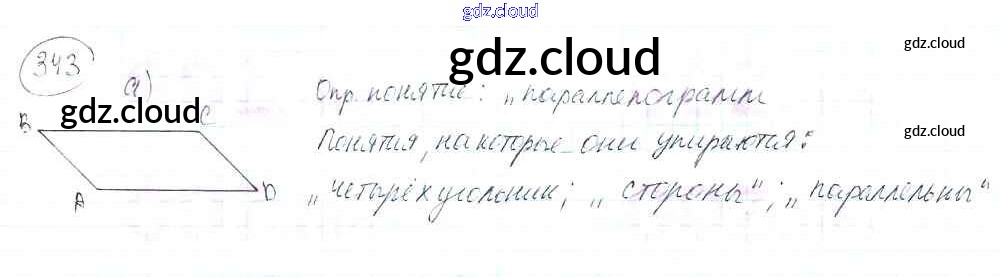 gdz.cloud
343
а)
gdz.cloud
gdz.cloud
Опр. понятие: „параллелограмм
В gdz.cloud С
Понятия, на которые они упираются:
gdz.cloud
А D
„четырёхугольник; „стороны"; „параллельны"